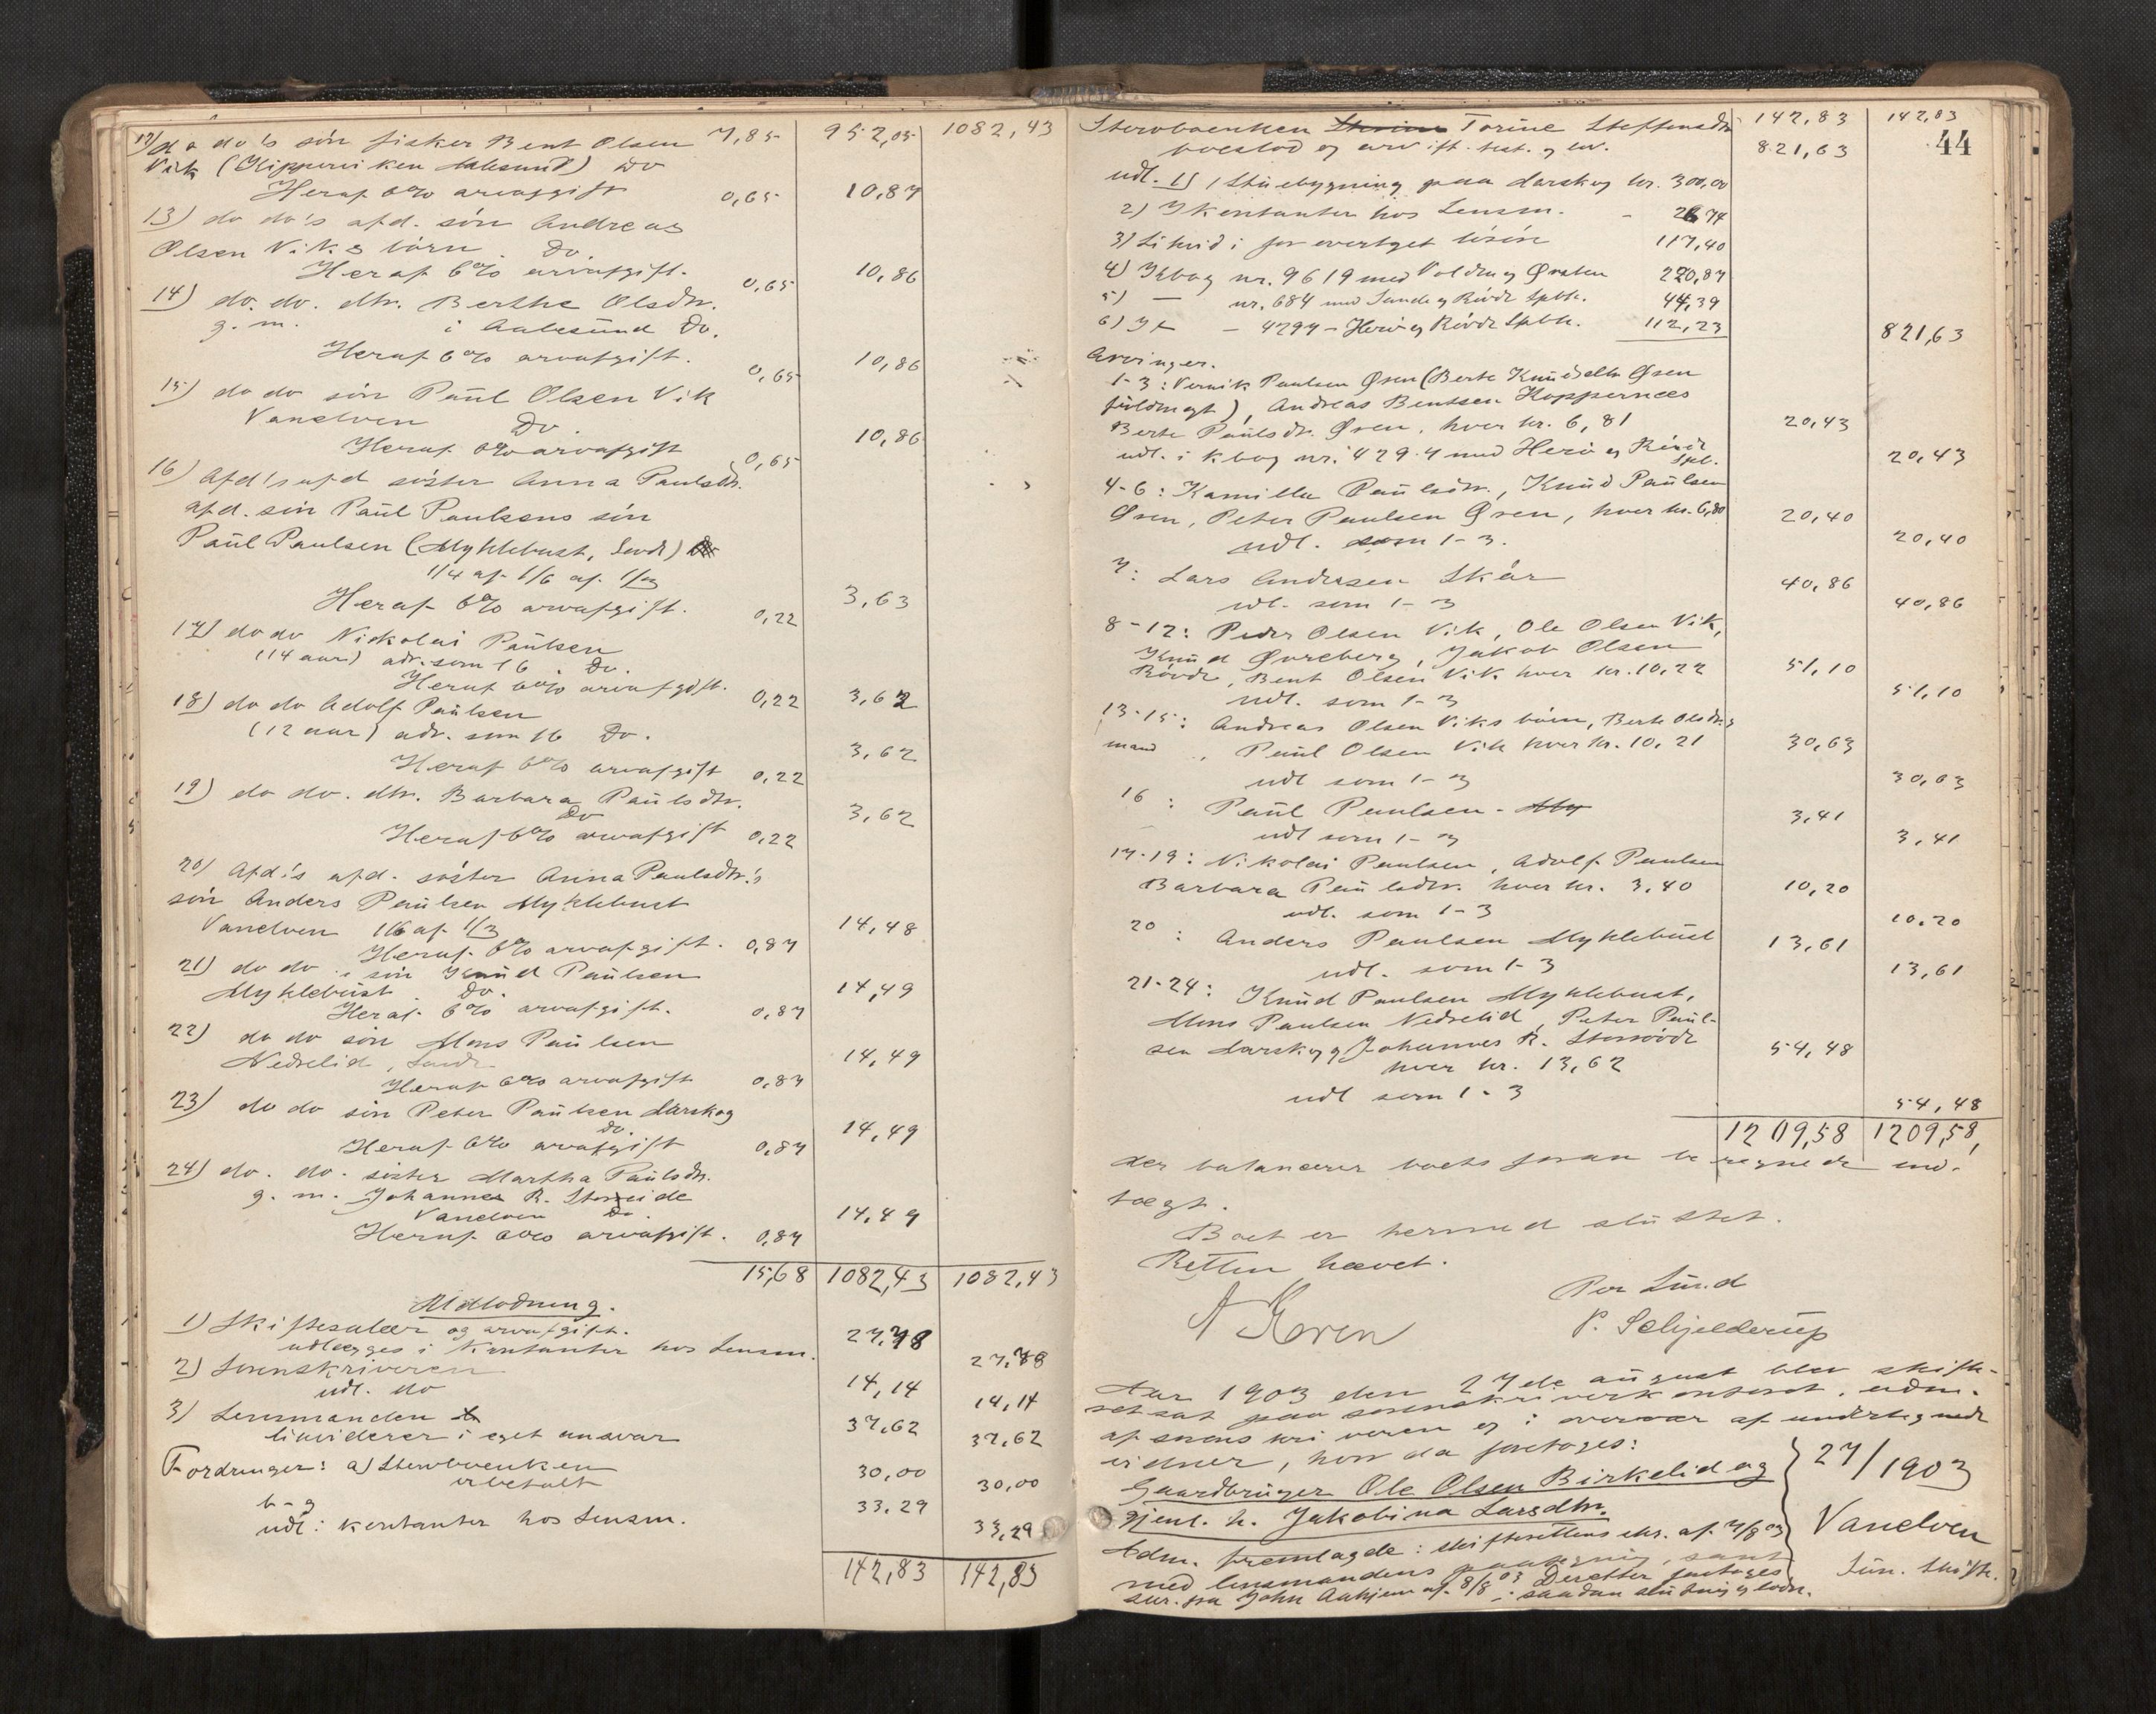 12) do do's søn fisker Bent Olsen 7,85 952,05 1082,43
Vik (Kipperviken Aalesund) Do
Heraf 6% arvafgift 0,65 10,87
13) do do's afd. søn Andreas
Olsen Viks børn Do.
Heraf 6% arvafgift. 0,65 10,86
14) do. do. dtr. Berthe Olsdtr.
g. m. i Aalesund Do.
Heraf 6% arvafgift. 0,65 10,86
15) do do søn Paul Olsen Vik
Vanelven Do.
Heraf 6% arvafgift 0,65 10,86
16) Afd's afd søster Anna Paulsdtr.
afd. søn Paul Paulsens søn
Paul Paulsen (Myklebust, Søvde)
1/4 af 1/6 af 1/3
Heraf 6% arvafgift. 0,22 3,63
17) do do Nickolai Paulsen
(14 aar) adr. som 16. Do.
Heraf 6% arvafgift. 0,22 3,62
18) do do Adolf Paulsen
(12 aar) adr. som 16 Do.
Heraf 6% arvafgift 0,22 3,62
19) do do. dtr. Barbara Paulsdtr.
Do
Heraf 6% arvafgift 0,22 3,62
20) Afd.'s afd. søster Anna Paulsdtr.'s
søn Anders Paulsen Myklebust
Vanelven 1/6 af 1/3 14,48
Heraf 6% arvafgift. 0,87
21) do do søn Knud Paulsen
Myklebust Do. 14,49
Heraf 6% arvafgift. 0,87
22) do do søn Mons Paulsen
Nedrelid, Søvde 14,49
Heraf 6% arvafgift 0,87
23) do do søn Peter Paulsen Aarskog
Do. 14,49
Heraf 6% arvafgift 0,87
24) do. do. søster Martha Paulsdtr.
g. m. Johannes R. Storeide
Vanelven Do. 14,49
Heraf 6% arvafgift. 0,87
15,68 1082,43 1082,43
Udlodning.
1) Skiftesalær og arvafgift. 27,78
udlægges i kontanter hos Lensm. 27,78
2) Sorenskriveren 14,14
udl. do 14,14
3) Lensmanden 37,62
likviderer i eget ansvar 37,62
Fordringer: a) Stervboenken 30,00
er betalt 30,00
b-g 33,29
udl: kontanter hos Lensm. 33,29
142,83 142,83
44
Stervboenken Torine Steffensdtr 142,83 142,83
boeslod og arv ift. test. og lov. 821,63
udl. 1) 1 Stuebygning paa Aarskog kr. 300,00
2) I kontanter hos Lensm. - 26 74
3) Likvid i for overtaget løsøre 117,40
4) Kbog nr. 9619 med Volden og Ørsten 220,87
5) — nr. 684 med Sande og Røvde Spbk. 44,39
6) — 4294 - Herø og Røvde Spbk. 112,23 821,63
Arvinger.
1-3: Vernik Paulsen Øren (Berte Knudsdtr Øren
fuldmægt), Andreas Bentsen Koppernæs
Berte Paulsdtr. Øren, hver kr. 6,81 20,43
udl. i kbog nr. 4294 med Herø og Røvde Spb. 20,43
4-6: Kamilla Paulsdtr., Knud Paulsen
Øren, Peter Paulsen Øren, hver kr. 6,80 20,40
udl. som 1-3. 20,40
7: Lars Andersen Skår 40,86
udl. som 1-3 40,86
8-12: Peder Olsen Vik, Ole Olsen Vik,
Knud Øvreberg, Jakob Olsen
Røvde, Bent Olsen Vik hver kr. 10,22 51,10
udl. som 1-3 51,10
13-15: Andreas Olsen Viks børn, Berte Olsdtr.s
mand , Paul Olsen Vik hver kr. 10,21 30,63
udl som 1-3 30,63
16: Paul Paulsen - My 3,41
udl som 1-3 3,41
17-19: Nikolai Paulsen, Adolf Paulsen
Barbara Paulsdtr. hver kr. 3,40 10,20
udl. som 1-3 10,20
20: Anders Paulsen Myklebust 13,61
udl. som 1-3 13,61
21-24: Knud Paulsen Myklebust,
Mons Paulsen Nedrelid, Peter Paul-
sen Aarskog Johannes R. Storeide 54,48
hver kr. 13,62
udl som 1-3 54,48
1209,58 1209,58
der balancerer boets foran beregnede ind-
tægt.
Boet er hermed sluttet.
Retten hævet.
Per Lund
P. Schjelderup
Aar 1903 den 27de august blev skifte-
ret sat paa sorenskriverkontoret, adm.
af sorenskriveren og i overvær af undertegnede
vidner, hvor da foretoges:
Gaardbruger Ole Olsen Birkelid og
gjenl. h. Jakobina Larsdtr.
27/1903
Vanelven
Sun. Skifte.
Adm. fremlagde: skifterettens skr. af 7/8 03
med lensmandens paategning, samt
skr. fra John Aahjem af 8/8 03 Derefter foretoges
saadan slutning og lodn.